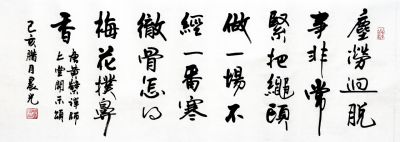 塵勞迥脫
事非常
緊把繩頭
做一場不
經一番寒
徹骨怎得
梅花撲鼻
香
唐黃檗禪師
上堂開示頌
乙亥腊月晨光